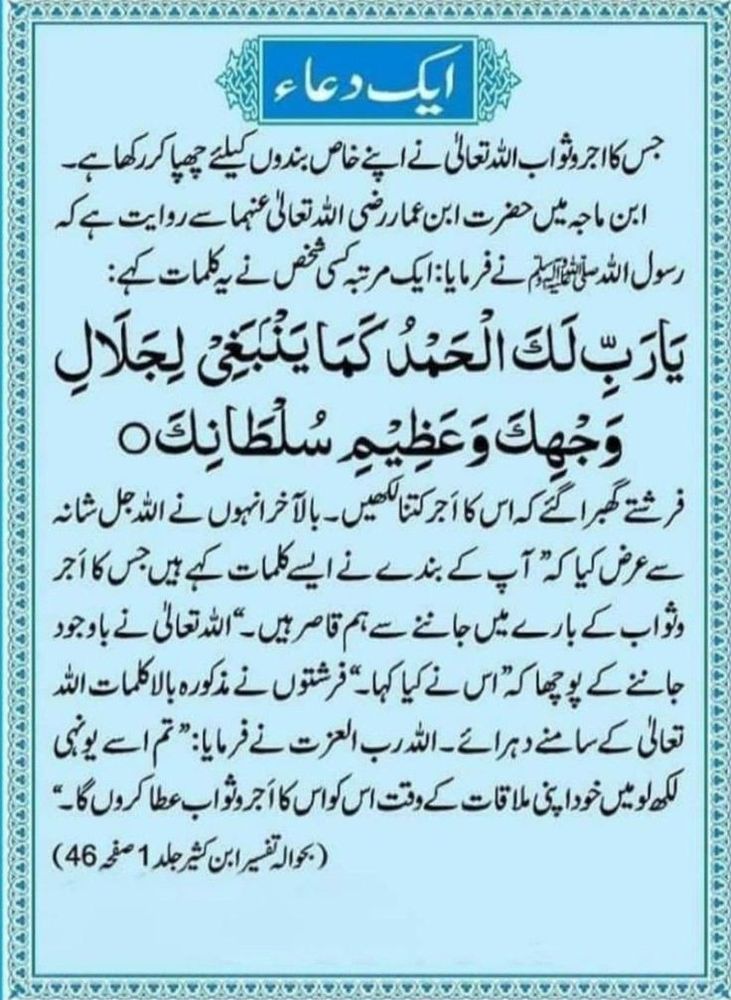 ایک دعاء
جس کا اجر و ثواب اللہ تعالیٰ نے اپنے خاص بندوں کیلئے چھپا کر رکھا ہے۔
ابن ماجہ میں حضرت ابن عمار رضی اللہ تعالیٰ عنہما سے روایت ہے کہ
رسول اللہ ﷺ نے فرمایا: ایک مرتبہ کسی شخص نے یہ کلمات کہے:
يَارَبِّ لَكَ الْحَمْدُ كَمَا يَنْبَغِيْ لِجَلَالِ
وَجْهِكَ وَعَظِيْمِ سُلْطَانِكَ ○
فرشتے گھبرا گئے کہ اس کا اَجر کتنا لکھیں۔ بالآخر انہوں نے اللہ جل شانہ
سے عرض کیا کہ ”آپ کے بندے نے ایسے کلمات کہے ہیں جس کا اَجر
و ثواب کے بارے میں جاننے سے ہم قاصر ہیں۔“ اللہ تعالیٰ نے باوجود
جاننے کے پوچھا کہ ”اس نے کیا کہا۔“ فرشتوں نے مذکورہ بالا کلمات اللہ
تعالیٰ کے سامنے دہرائے۔ اللہ رب العزت نے فرمایا: ”تم اسے یونہی
لکھ لو میں خود اپنی ملاقات کے وقت اس کو اس کا اَجر و ثواب عطا کروں گا۔“
(بحوالہ تفسیر ابن کثیر جلد 1 صفحہ 46)